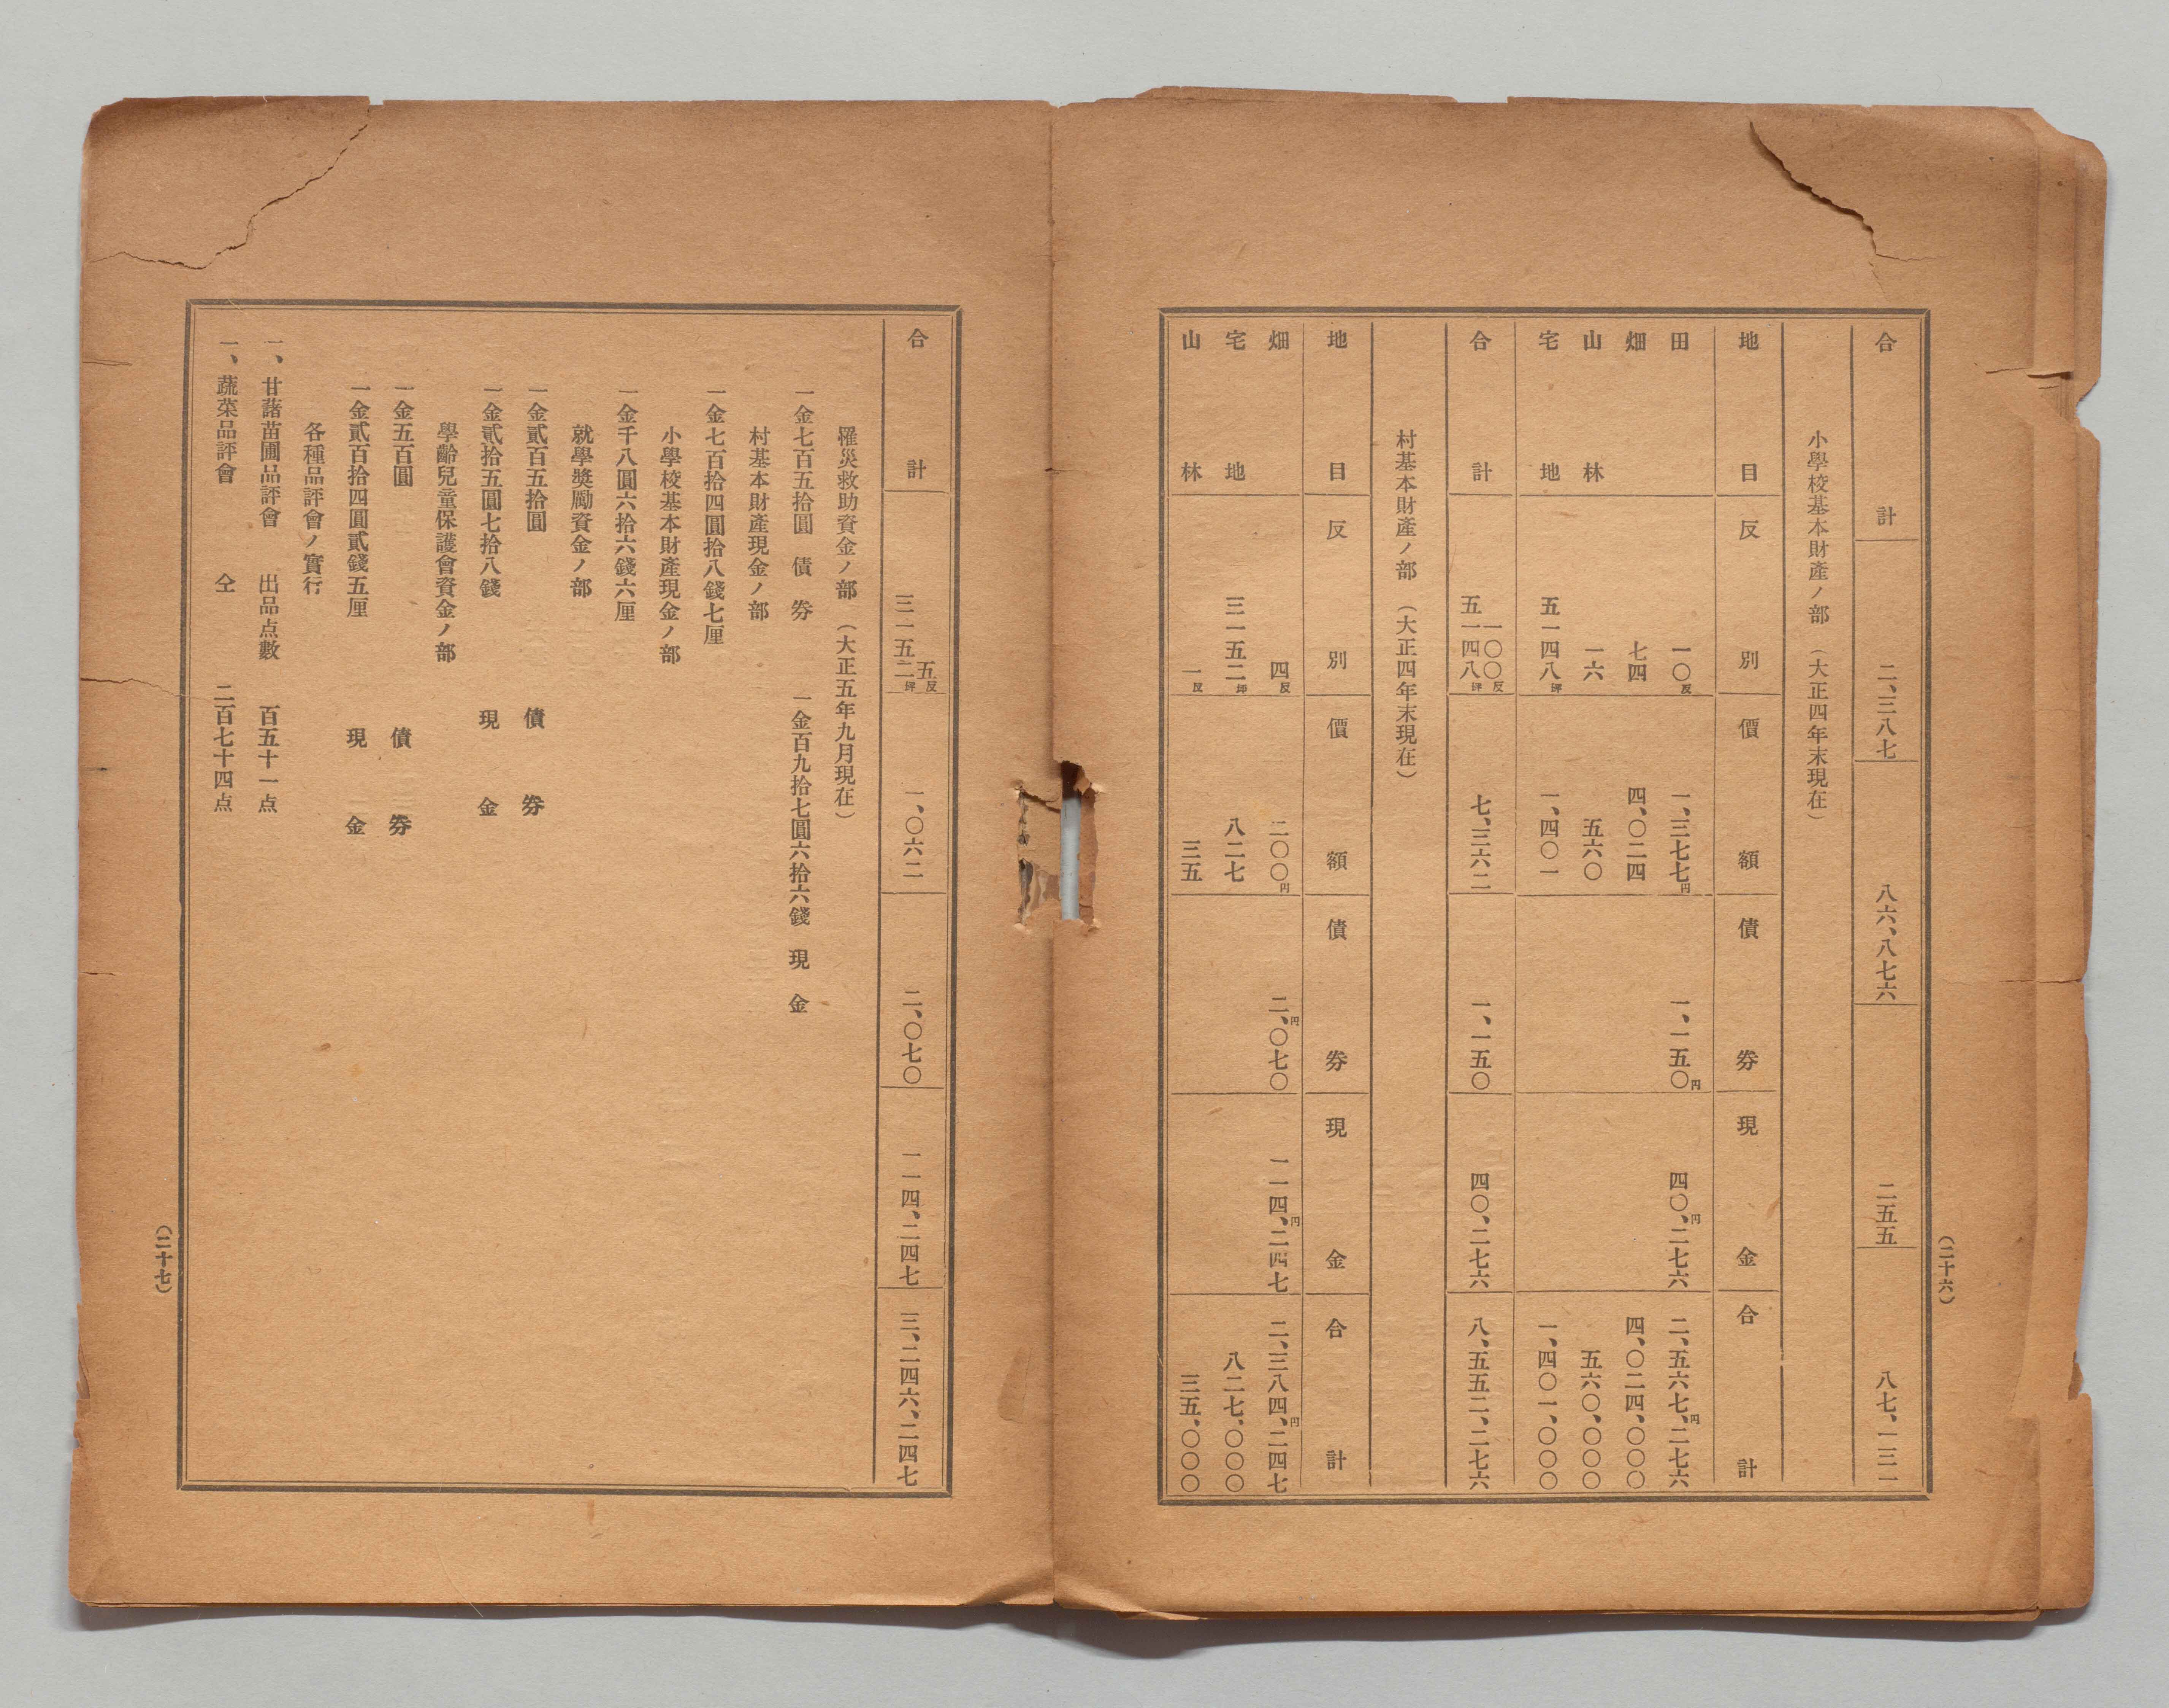 合計 二、三八七 八六、八七六 二五五 八七、一三一
小學校基本財產ノ部（大正四年末現在）
地目 反別 價額 債券 現金 合計
田 一〇反 一、三七七円 一、一五〇円 四〇、円二七六 二、五六七、円二七六
畑 七四 四、〇二四 四、〇二四、〇〇〇
山林 一六 五六〇 五六〇、〇〇〇
宅地 五一四八坪 一、四〇一 一、四〇一、〇〇〇
合計 一〇〇反 五一四八坪 七、三六二 一、一五〇 四〇、二七六 八、五五二、二七六
村基本財產ノ部（大正四年末現在）
地目 反別 價額 債券 現金 合計
畑 四反 二〇〇円 二、円〇七〇 一一四、円二四七 二、三八四、円二四七
宅地 三一五二坪 八二七 八二七、〇〇〇
山林 一反 三五 三五、〇〇〇
（二十六）
合計 五反 三一五二坪 一、〇六二 二、〇七〇 一一四、二四七 三、二四六、二四七
罹災救助資金ノ部（大正五年九月現在）
一金七百五拾圓 債券 一金百九拾七圓六拾六錢 現金
村基本財產現金ノ部
一金七百拾四圓拾八錢七厘
小學校基本財產現金ノ部
一金千八圓六拾六錢六厘
就學奬勵資金ノ部
一金貳百五拾圓 債券
一金貳拾五圓七拾八錢 現金
學齡兒童保護會資金ノ部
一金五百圓 債券
一金貳百拾四圓貳錢五厘 現金
各種品評會ノ實行
一、甘藷苗圃品評會 出品点數 百五十一点
一、蔬菜品評會 仝 二百七十四点
（二十七）